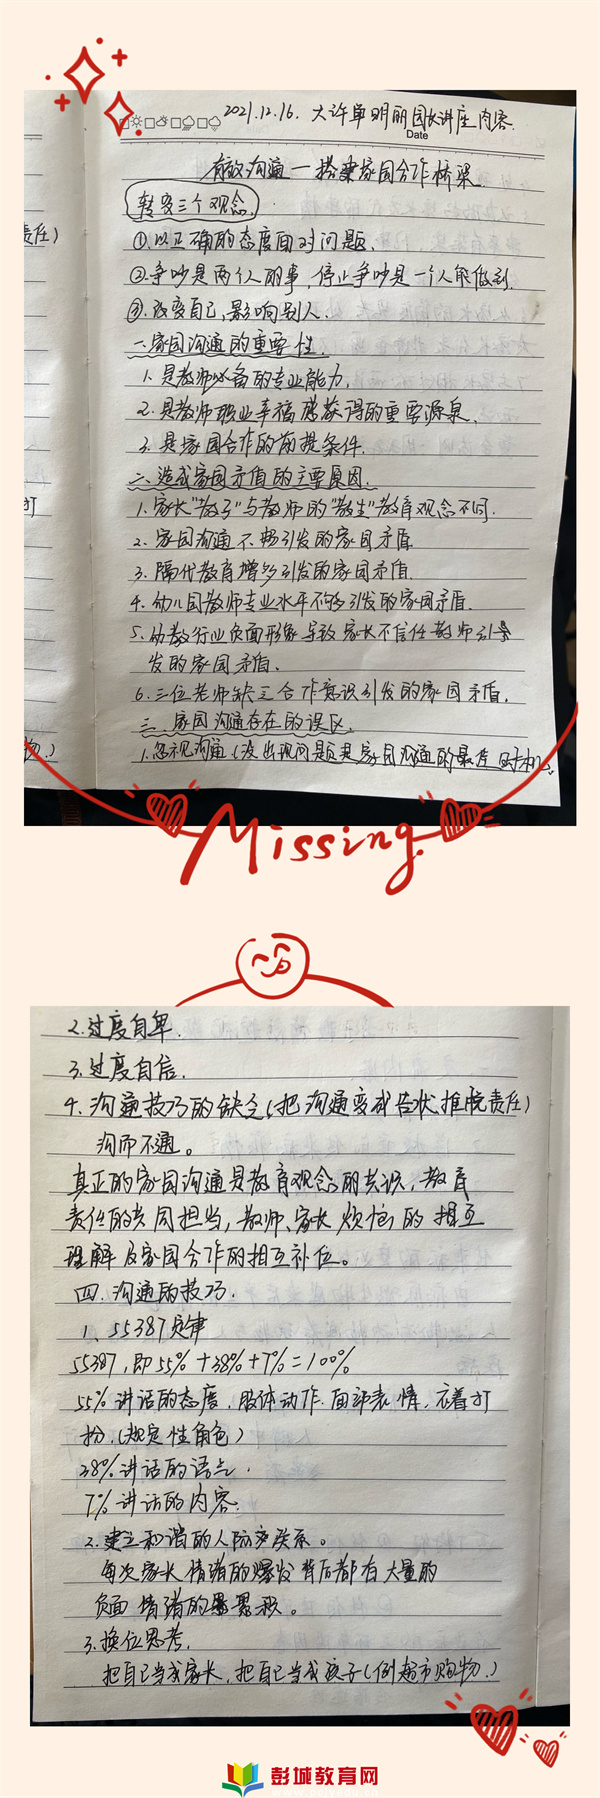 2021.12.16. 大许单明丽园长讲座内容.
Date
有效沟通一搭建家园合作桥梁.
转变三个观念.
①以正确的态度面对问题.
②争吵是两个人的事,停止争吵是一个人能做到.
③.改变自己,影响别人.
一.家园沟通的重要性.
1.是教师必备的专业能力.
2.是教师职业幸福感获得的重要源泉.
3.是家园合作的前提条件.
二、造成家园矛盾的主要原因.
1.家长"教子"与教师的"教生"教育观念不同.
2.家园沟通不畅引发的家园矛盾
3.隔代教育增多引发的家园矛盾.
4.幼儿园教师专业水平不够引发的家园矛盾.
5.幼教行业负面形象导致家长不信任教师引
发的家园矛盾.
6.三位老师缺乏合作意识引发的家园矛盾.
三、家园沟通存在的误区.
1.忽视沟通(没出现问题是家园沟通的最佳时机)
责任)
打
物.)
Missing
2.过度自卑.
3.过度自信.
4.沟通技巧的缺乏(把沟通变成告状,推脱责任)
沟而不通。
真正的家园沟通是教育观念的共识,教育
责任的共同担当,教师、家长烦恼的相互
理解及家园合作的相互补位。
四.沟通的技巧.
1、55387定律
55387,即55%+38%+7%=100%
55%讲话的态度.肢体动作.面部表情.衣着打
扮.(规定性角色)
38%讲话的语气.
7%讲话的内容.
2.建立和谐的人际关系。
每次家长情绪的爆发背后都有大量的
负面情绪的累积。
3.换位思考.
把自己当成家长,把自己当成孩子(例超市购物.)
彭城教育网